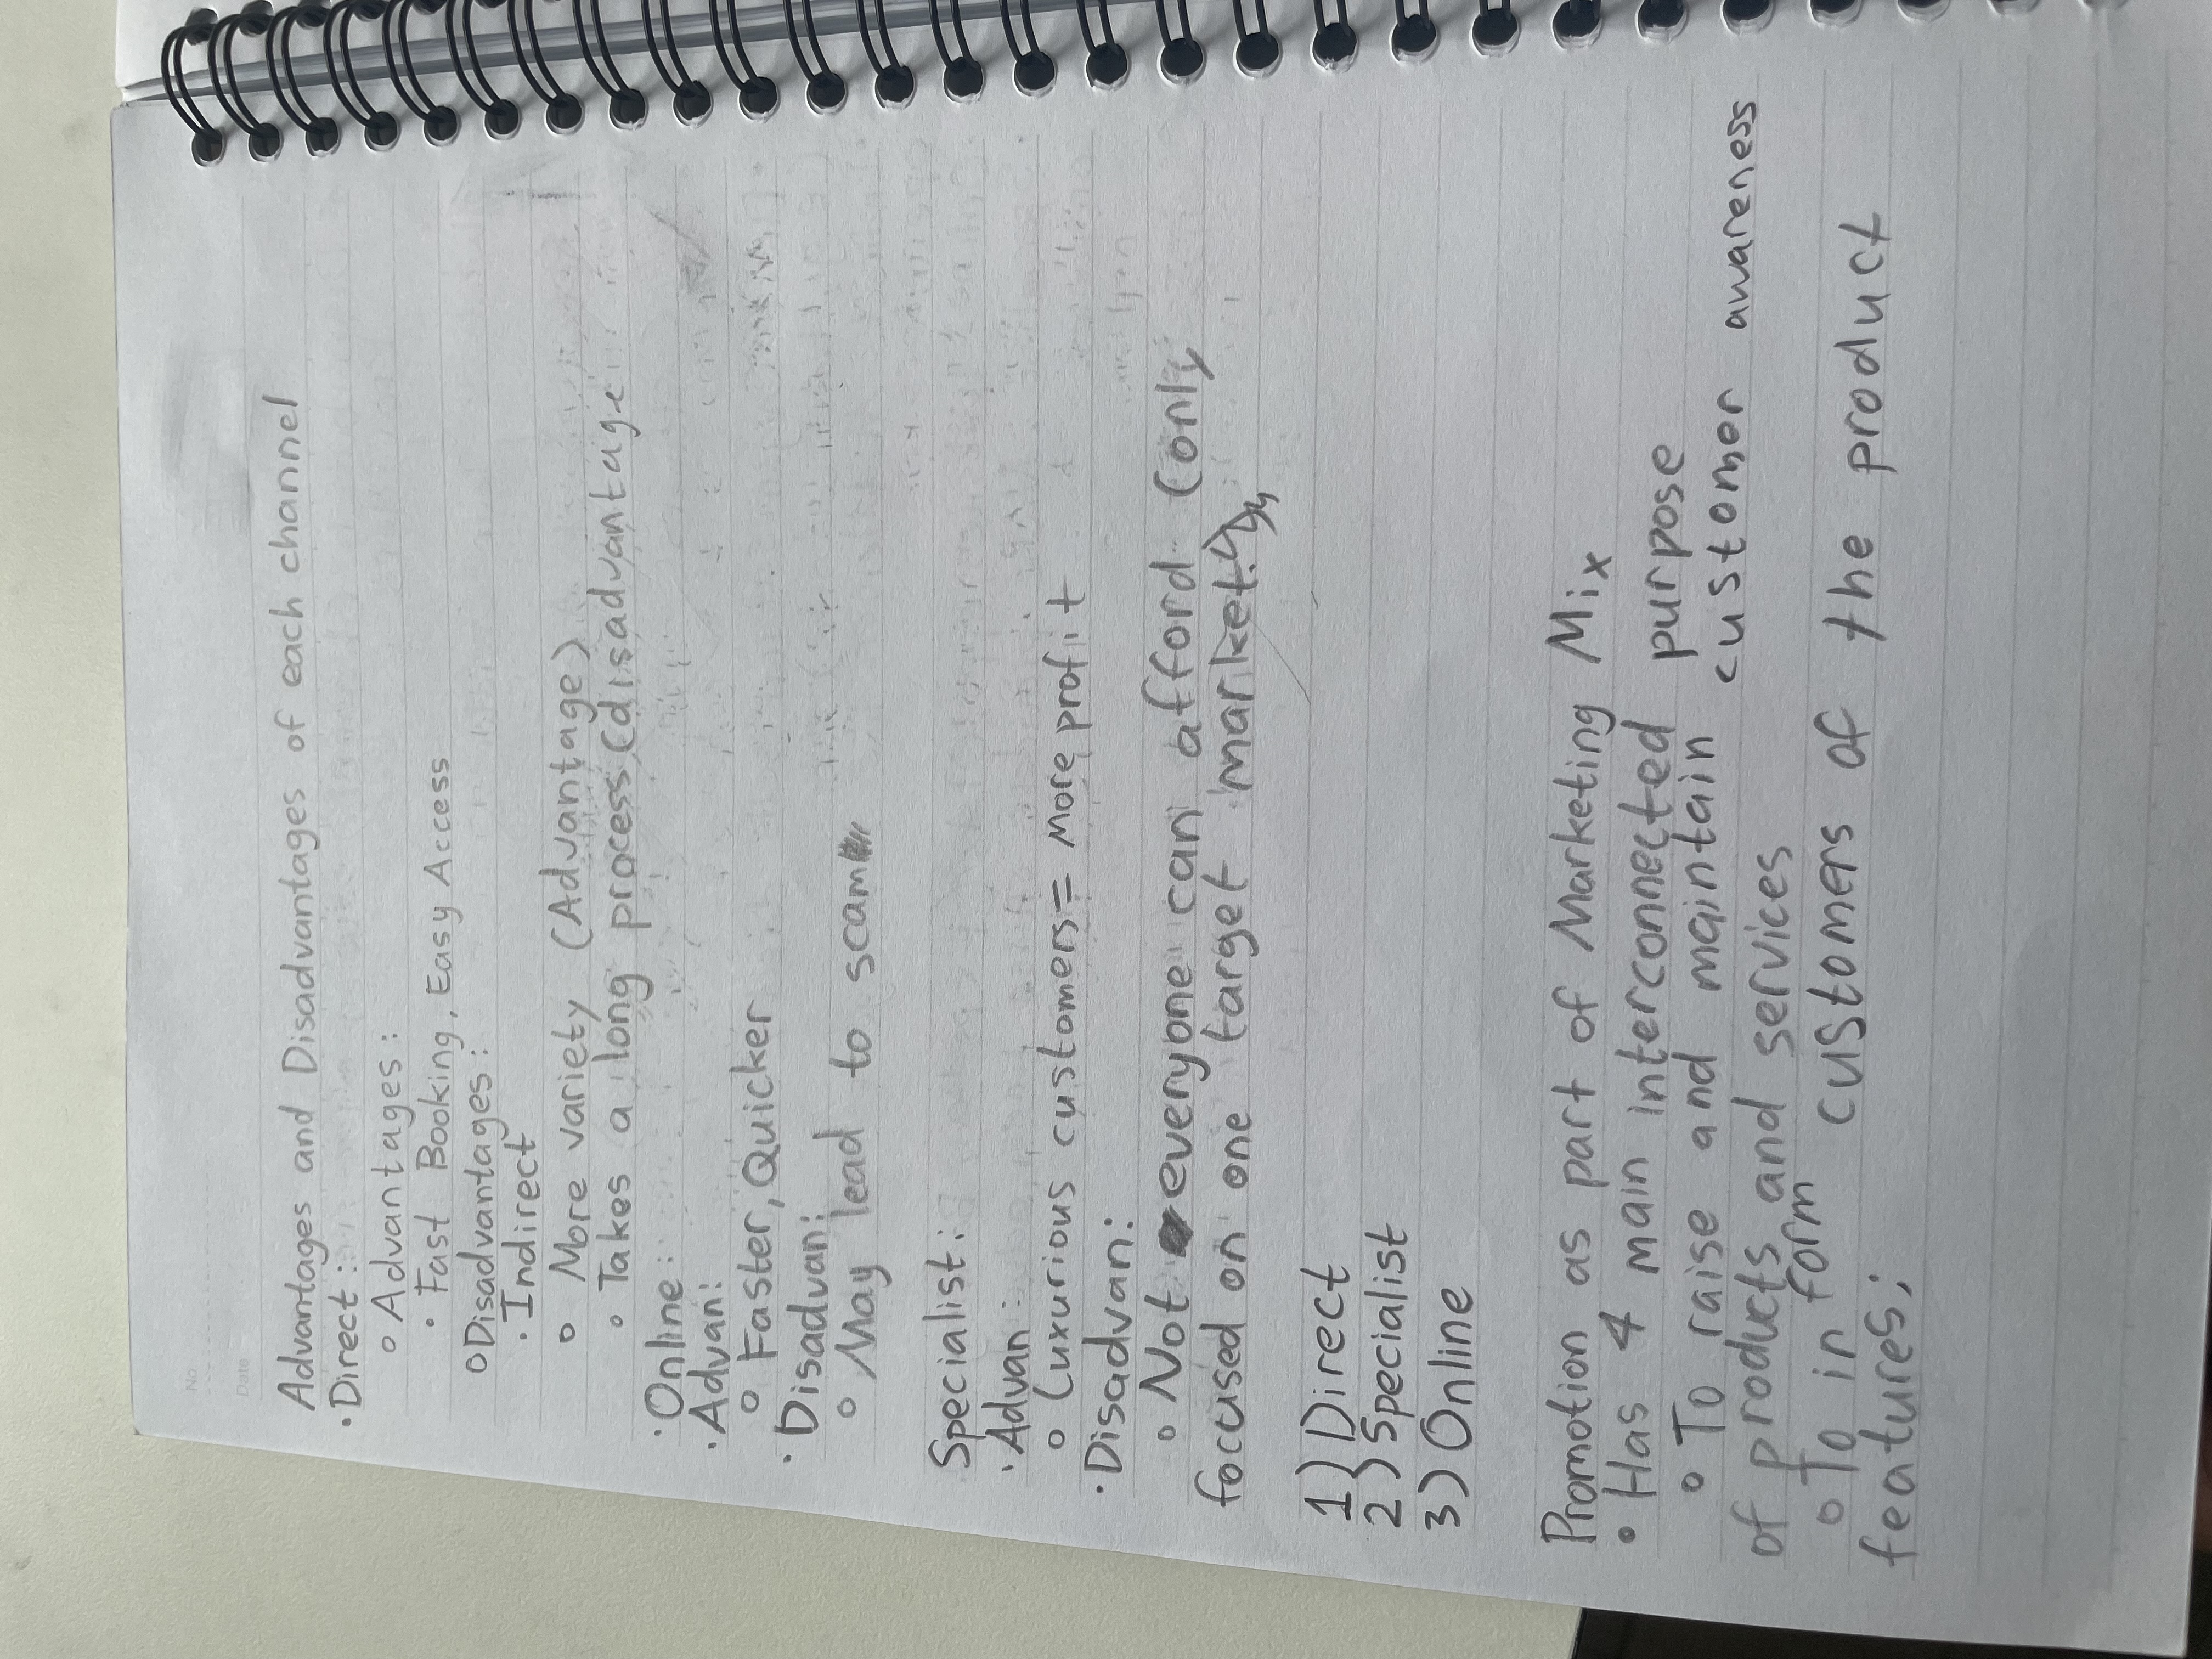 No
Date
Advantages and Disadvantages of each channel
· Direct:
o Advantages:
· Fast Booking, Easy Access
o Disadvantages:
· Indirect
o More variety (Advantage)
o Takes a long process (disadvantage
· Online:
· Advan:
o Faster, Quicker
· Disadvan:
o May lead to scam
Specialist:
· Advan:
o Luxurious customers = more profit
· Disadvan:
o Not everyone can afford (only
focused on one target market
1) Direct
2) Specialist
3) Online
Promotion as part of Marketing Mix
• Has 4 main interconnected purpose
o To raise and maintain customer awareness
of products and services
o To inform customers of the product
features;